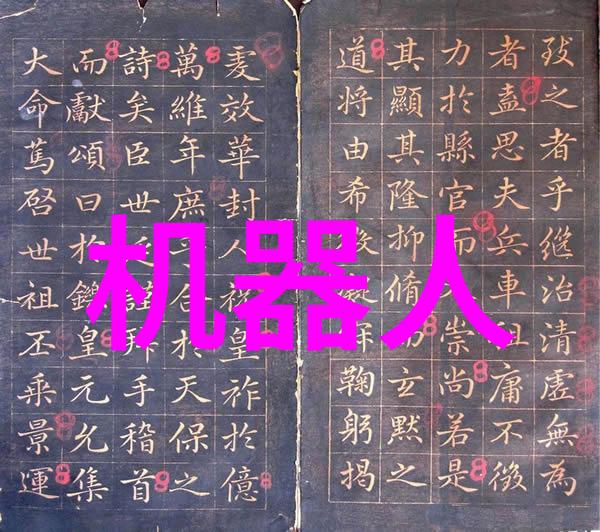 致之者乎继治清虛無為
者盍思夫兵車租庸不徵
力於縣官而崇尚若是
其顯其隆抑脩玄默之
道将由希鞠躬揭
爰效華封人祝皇祚於億
萬維年庶合於天保之
詩矣臣世謹拜手稽首
而獻頌曰於鑠皇元允集
大命篤啓世祖丕乘景運
机器人